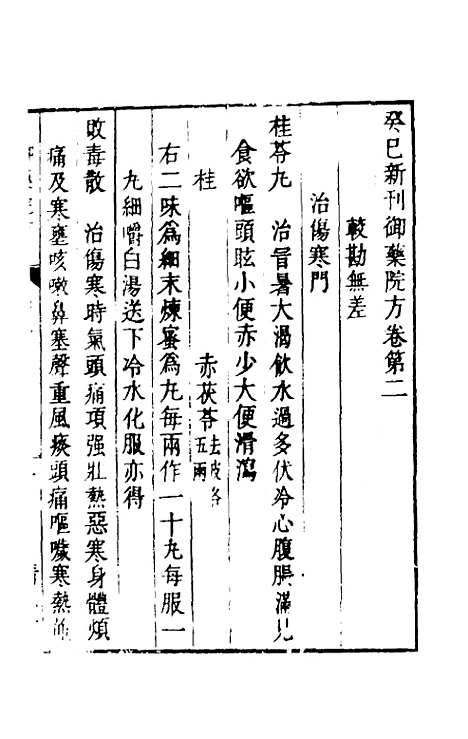 癸巳新刊御藥院方卷第二
較勘無差
治傷寒門
桂苓丸　治冒暑大渴飲水過多伏冷心腹脹滿見
食欲嘔頭眩小便赤少大便滑瀉
桂　赤茯苓去皮各五兩
右二味爲細末煉蜜爲丸每兩作一十丸每服一
丸細嚼白湯送下冷水化服亦得
敗毒散　治傷寒時氣頭痛項强壯熱惡寒身體煩
痛及寒壅咳嗽鼻塞聲重風痰頭痛嘔噦寒熱並